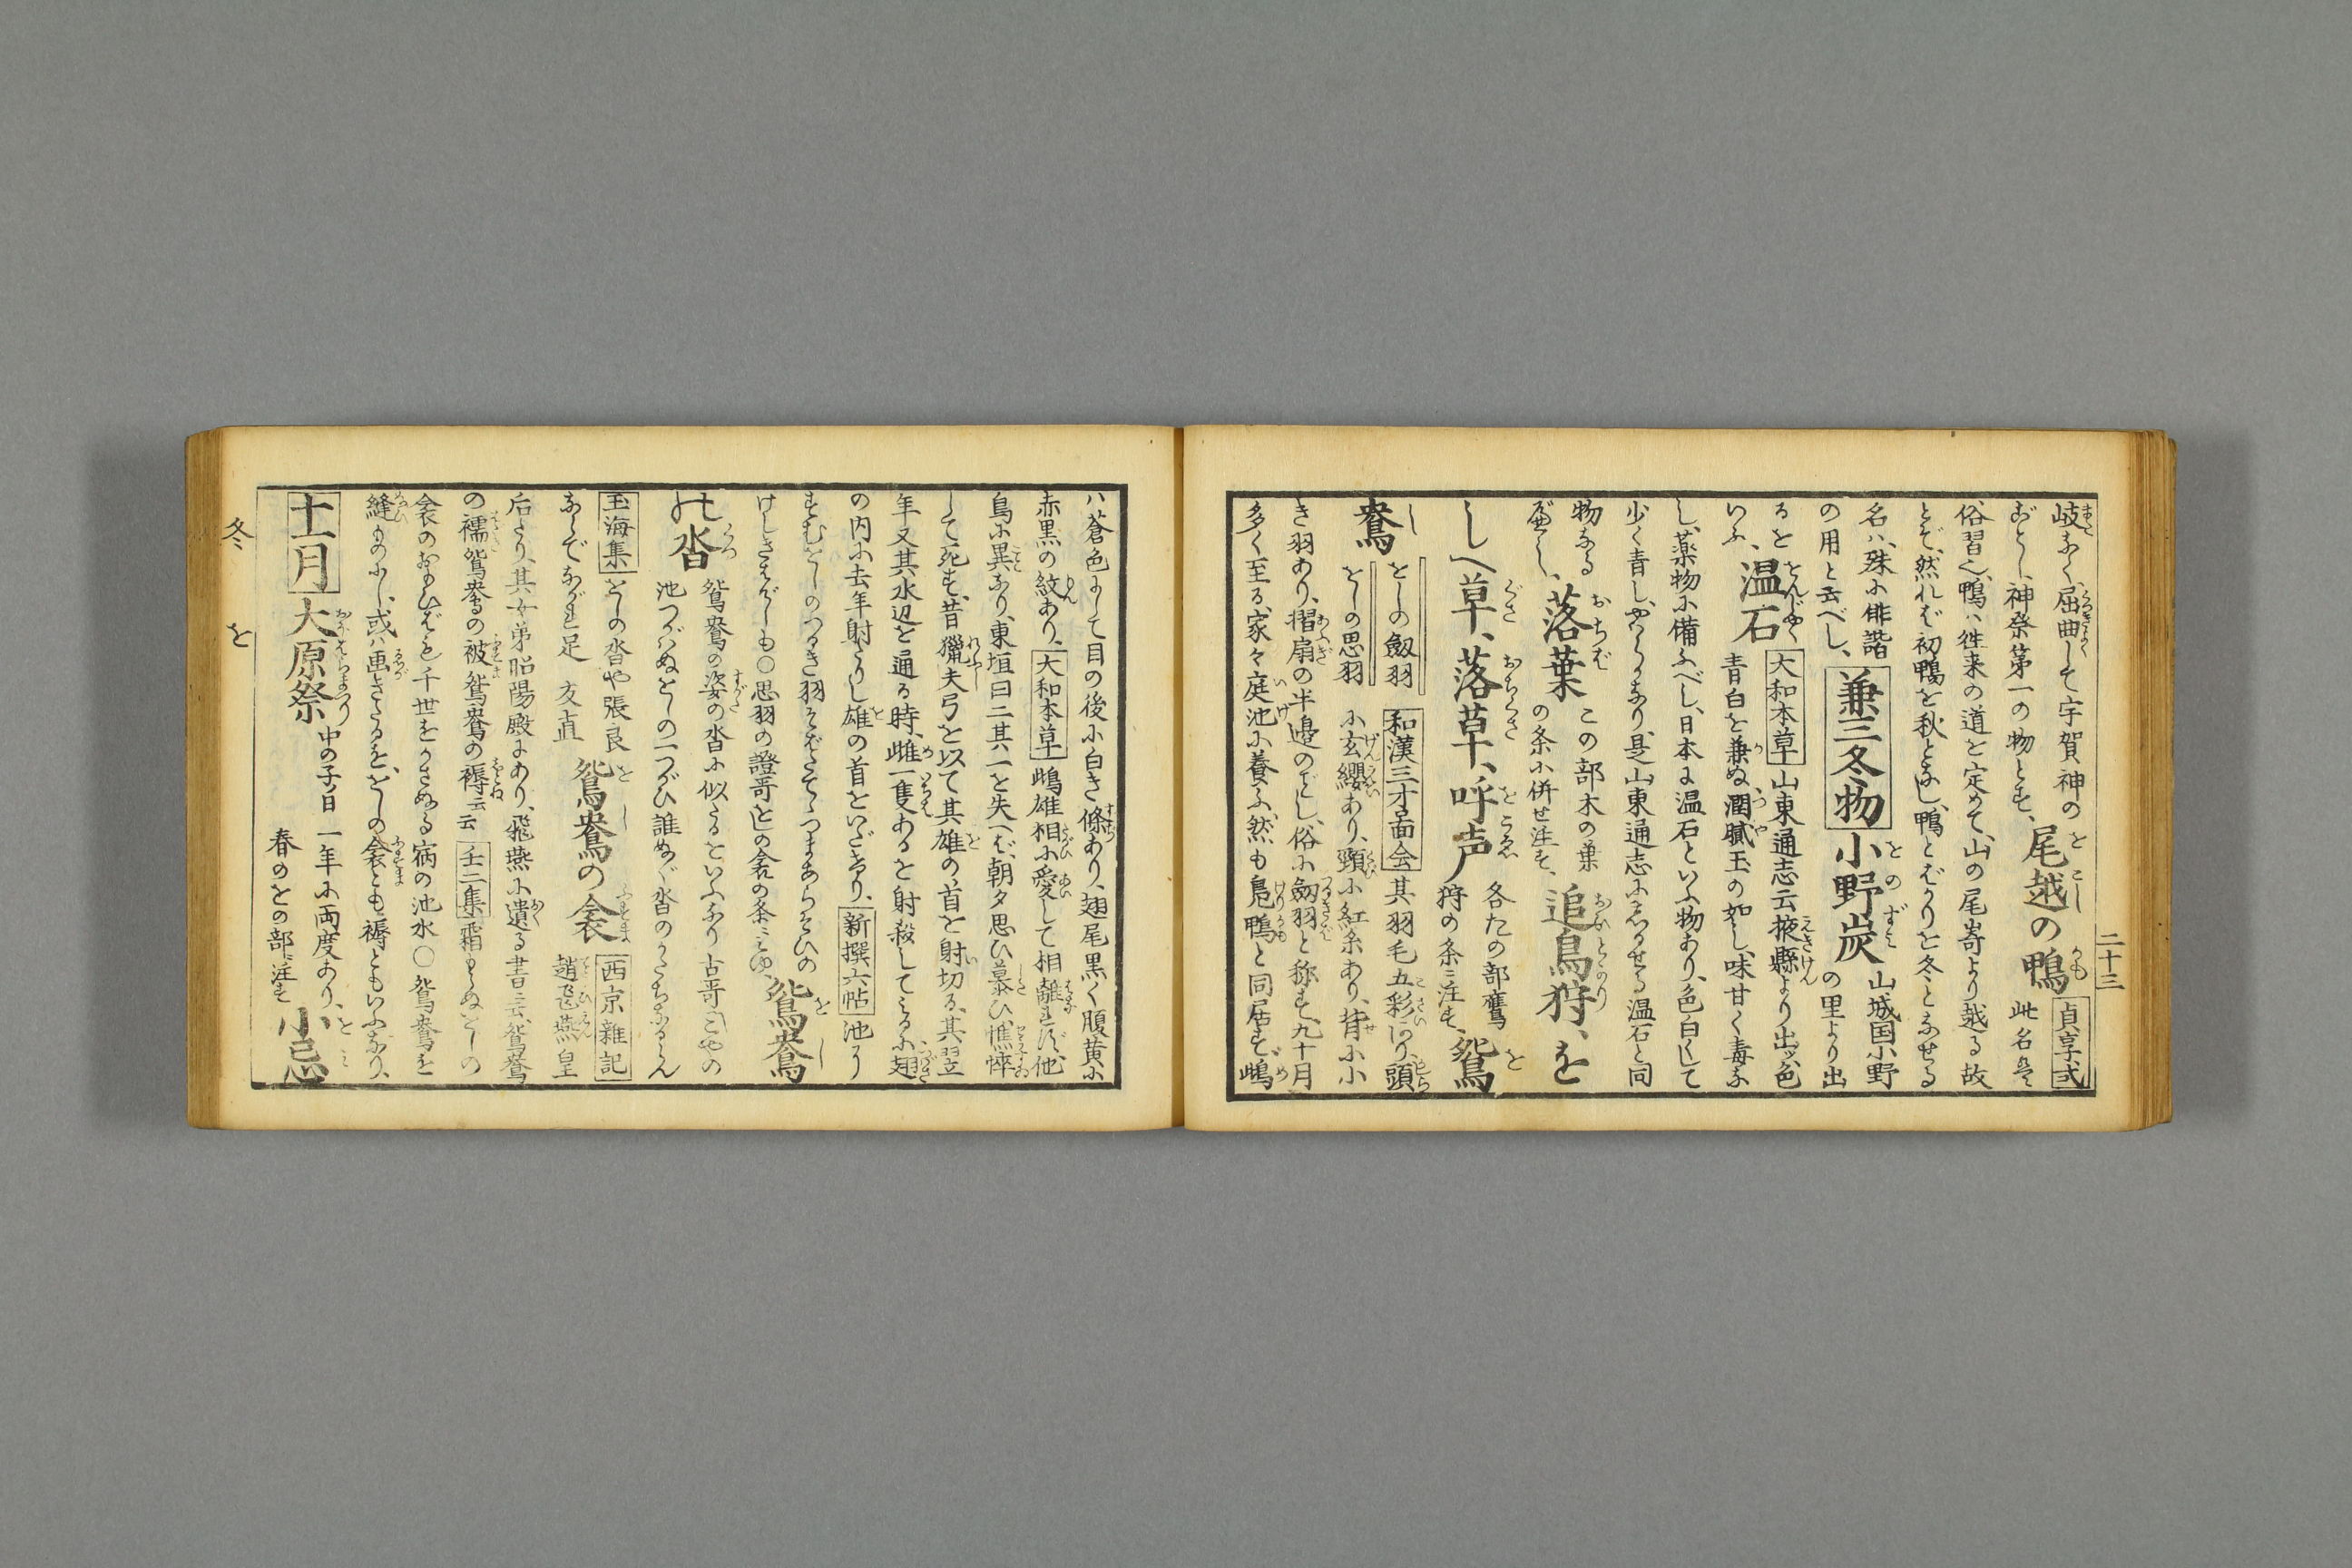 二十三
岐なく、屈曲して宇賀神の
ごとし、神祭第一の物とす、尾越の鴨 貞享式 此名は
俗習也、鴨ハ往来の道を定めて、山の尾嵜より越る故
とぞ、然れば初鴨を秋となし、鴨とばかりを冬とふせる
名ハ、殊に俳諧
の用と云べし、兼三冬物 小野炭 山城国小野
の里より出
るを
いふ、温石 大和本草 山東通志云掖縣より出ヅ、色
青白を兼ぬ、潤膩玉の如し、味甘く毒な
し、薬物に備ふべし、日本に温石といふ物あり、色白くして
少く青し、やハらかなり、是山東通志にのせる温石と同
物なる
べし、落葉 この部木の葉
の条に併せ注す、追鳥狩、を
し へ草、落草、呼声 各たの部鷹
狩の条ニ注す、鴛
鴦 をしの劔羽
をしの思羽 和漢三才圖会 其羽毛五彩あり、頭
に玄纓あり、頸に紅糸あり、背に小
き羽あり、摺扇の半邉のごとし、俗に劔羽と称す、九十月
多く至る、家々庭池に養ふ、然も鳬鴨と同居せず、雌
ハ蒼色にして目の後に白き條あり、翅尾黒く腹黄に
赤黒の紋あり、大和本草 雌雄相に愛して相離れず、他
鳥に異なり、東垣曰二其一を失へば、朝夕思ひ慕ひ、憔悴
して死す、昔獵夫弓を以て其雄の首を射切る、其翌
年又其水辺を通る時、雌一隻あるを射殺してミるに、翅
の内に去年射たりし雄の首をいだきたり、新撰六帖 池に
すむをしのつるぎ羽そばたてゝつまあらそひの
けしきはげしも○思羽の證哥をしの衾の条ニミゆ、鴛鴦
の沓 鴛鴦の姿の沓に似たるをいふなり古哥こやの
池つがハぬをしの一つがひ誰ぬぐ沓のかたちなるらん
玉海集 をしの沓や張良
なしでながれ足 友直 鴛鴦の衾 西京雑記
趙飛燕皇
后たり、其女弟昭陽殿にあり、飛燕に遺る書云、鴛鴦
の襦鴛鴦の被鴛鴦の褥云云 壬二集 霜むすぬをしの
衾のおもひばを千世をかさぬる宿の池水○鴛鴦を
縫ものにし、或ハ画きたるを、をしの衾とも褥ともいふなり、
十一月 大原祭 中の子日 一年に両度あり、
春のをの部ニ注す 小忌
冬 を